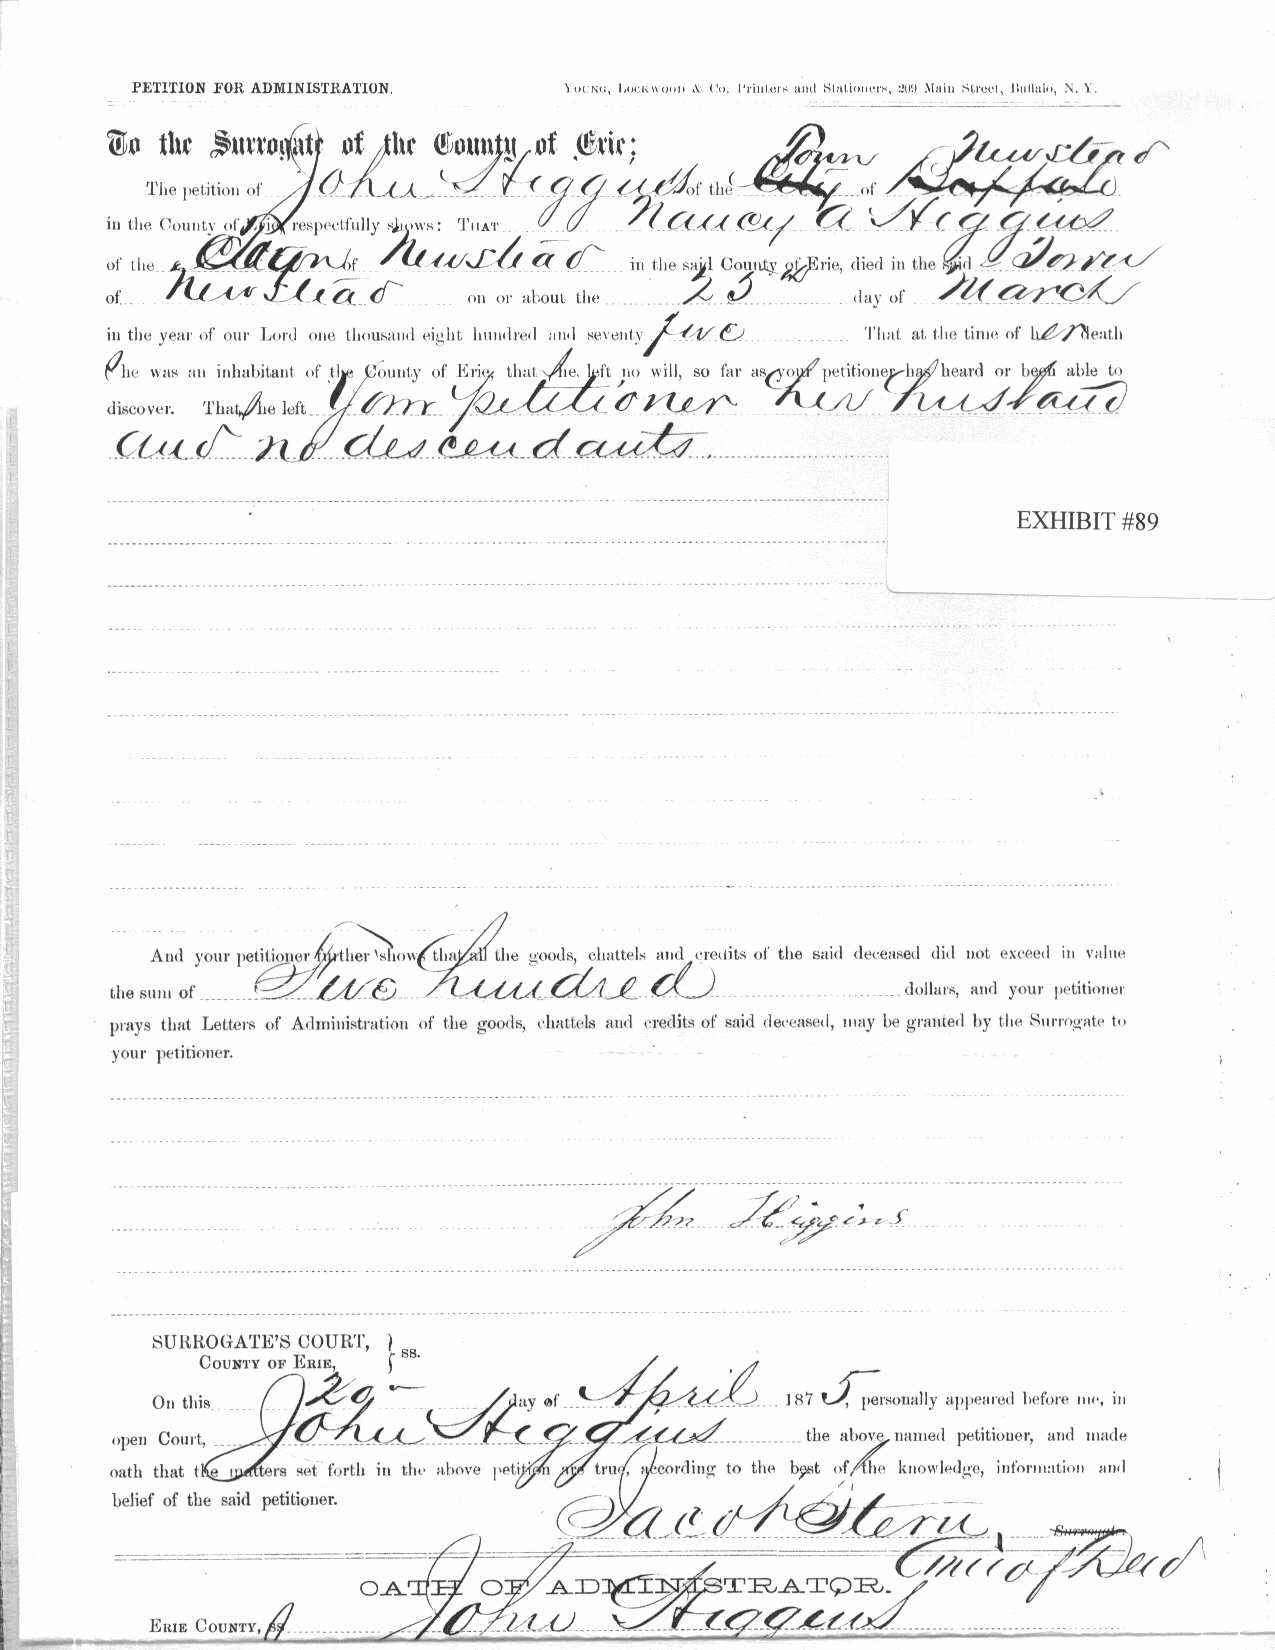 PETITION FOR ADMINISTRATION. YOUNG, LOCKWOOD & Co. Printers and Stationers, 209 Main Street, Buffalo, N. Y.
To the Surrogate of the County of Erie:
Town Newstead
The petition of John Higgins of the City of Buffalo
in the County of Erie respectfully shows: THAT Nancy A Higgins
of the Town of Newstead in the said County of Erie, died in the said Town
of Newstead on or about the 25th day of March
in the year of our Lord one thousand eight hundred and seventy five That at the time of her death
She was an inhabitant of the County of Erie, that she left no will, so far as your petitioner has heard or been able to
discover. That she left Your petitioner her husband
and no descendants.
EXHIBIT #89
And your petitioner further shows that all the goods, chattels and credits of the said deceased did not exceed in value
the sum of Two hundred dollars, and your petitioner
prays that Letters of Administration of the goods, chattels and credits of said deceased, may be granted by the Surrogate to
your petitioner.
John Higgins
SURROGATE'S COURT, } ss.
COUNTY OF ERIE,
On this 20 day of April 1875, personally appeared before me, in
open Court, John Higgins the above named petitioner, and made
oath that the matters set forth in the above petition are true, according to the best of the knowledge, information and
belief of the said petitioner.
Jacob Stern, Surrogate.
OATH OF ADMINISTRATOR.
ERIE COUNTY, ss. John Higgins